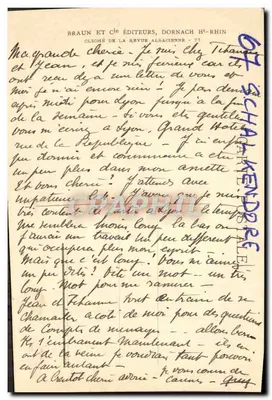 BRAUN ET Cie ÉDITEURS, DORNACH Ht-RHIN
CLICHÉ DE LA REVUE ALSACIENNE
Ma grande cherie - Je suis chez
et Jean, et je suis furieux car ils
ont reçu déjà une lettre de vous et
moi je n'ai encore rien! Je pars demain
après midi pour Lyon jusqu'à la fin
de la semaine. Si vous êtes gentille
vous m'écrirez à Lyon Grand Hotel
rue de la Republique - J'ai enfin
pu dormir et commence à
un peu plus dans mon assiette
Et vous cherie? J'attends avec
impatience
très content de
me semblera moins long là bas
j'aurai un travail un peu different
qui occupera plus mon esprit
Mais que c'est long. Vous m'aimez
un peu dites? Vite un mot - un très
long mot pour me rassurer -
Jean et sont en train de se
chamailler à coté de moi pour des questions
de comptes de menage - allons bon
ils s'embrassent maintenant - ils
ont de la veine je voudrais tant pouvoir
en faire autant -
A bientot cherie adorée -
67 SCHALKENDORF